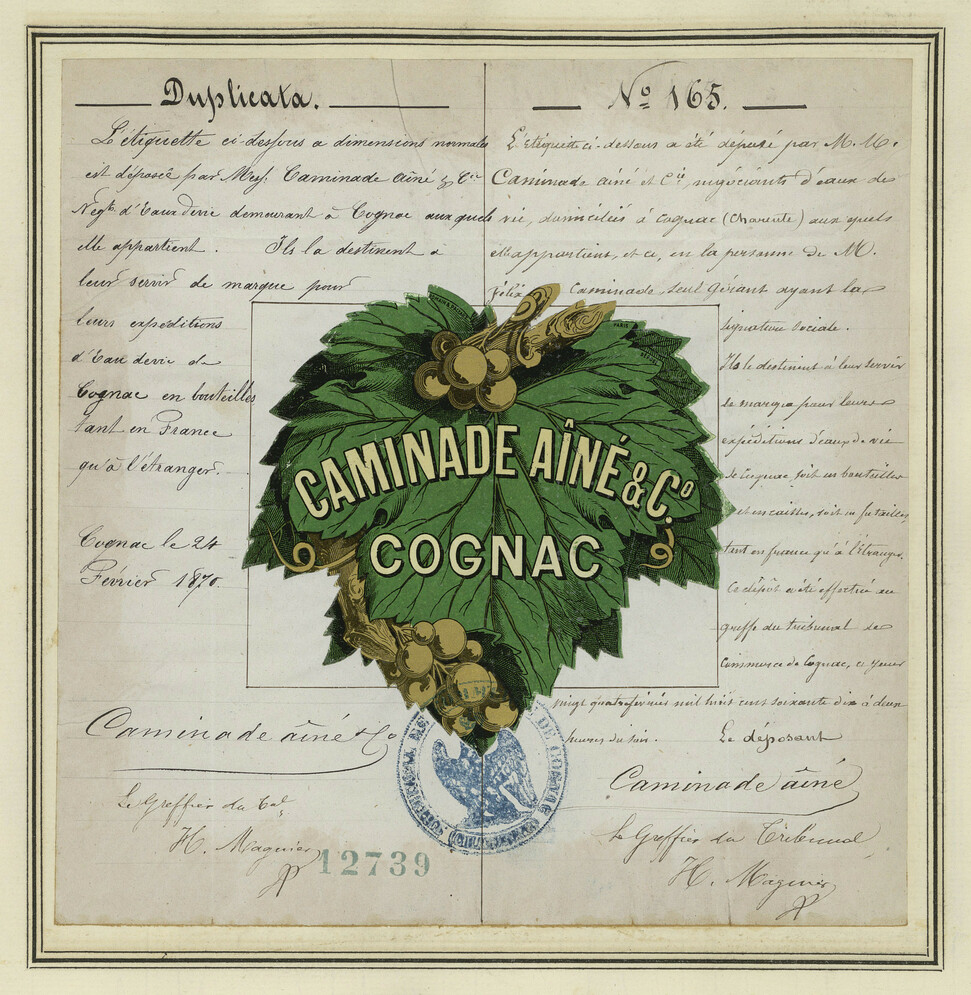 Duplicata.
L'étiquette ci-dessous a dimensions normales
est déposée par Mess. Caminade aîné & Cie
Negts d'Eaux devie demeurant à Cognac aux quels
elle appartient. Ils la destinent à
leur servir de marque pour
leurs expéditions
d'Eau devie de
Cognac en bouteilles
tant en France
qu'à l'étranger.
Cognac le 24
Février 1870.
Caminade aîné & Co
Le Greffier du Tal
H. Magnier
12739
No 165.
L'Etiquette ci-dessous a été déposé par M. M.
Caminade aîné et Cie, négociants d'eaux de
vie, domiciliés à cognac (Charente) aux quels
elle appartient, et ce, en la personne de M.
Félix Caminade, seul Gérant ayant la
signature sociale.
Ils le destinent à leur servir
de marque pour leurs
expéditions d'eaux de vie
de Cognac soit en bouteilles
et en caisses, soit en futailles,
tant en france qu'à l'étranger.
Ce dépôt a été effectué au
greffe du tribunal de
Commerce de Cognac, ce jour
vingt quatre février mil huit cent soixante dix à deux
heures du soir. Le déposant
Caminade aîné
Le Greffier du Tribunal
H. Magnier
CAMINADE AÎNÉ & Co.
COGNAC
PARIS